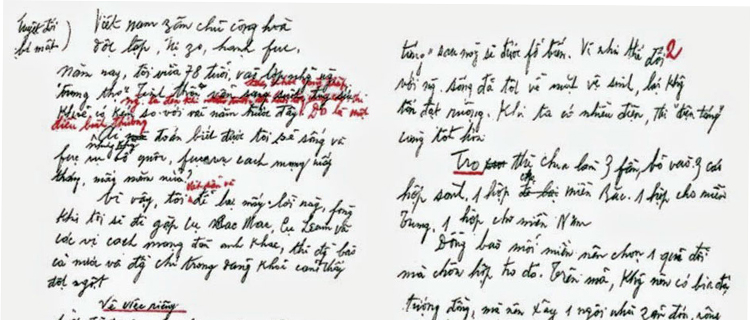 Tuyệt đối
bí mật )
Việt nam zân chủ cộng hoà
độc lập, tự zo, hạnh fúc.
Năm nay, tôi vừa 78 tuổi, vào lớp những
trung thọ. Tinh thần
so với vài năm trước đây. Đó là một
điều bình thường
Ai mà đoán biết được tôi sẽ sống và
fục vụ tổ quốc, fục vụ cách mạng mấy
tháng, mấy năm nữa?
Vì vậy, tôi viết sẵn để lại mấy lời này, fòng
khi tôi sẽ đi gặp cụ Các Mác, Cụ Lênin và
các vị cách mạng đàn anh khác, thì đồng bào
cả nước và đồng chí trong đảng khỏi cảm thấy
đột ngột
Về việc riêng
2
táng" sau này sẽ được fổ biến. Vì như thế đối
với ng. sống đã tốt về mặt vệ sinh, lại khg
tốn đất ruộng. Khi ta có nhiều điện, thì "điện táng"
càng tốt hơn.
Tro thì chia làm 3 fần, bỏ vào 3 cái
hộp sành, 1 hộp cho miền Bắc. 1 hộp cho miền
Trung, 1 hộp cho miền Nam
Đồng bào mỗi miền nên chọn 1 quả đồi
mà chôn hộp tro đó. Trên mả, khg nên có bia đá,
tượng đồng, mà nên xây 1 ngôi nhà giản đơn, rộng